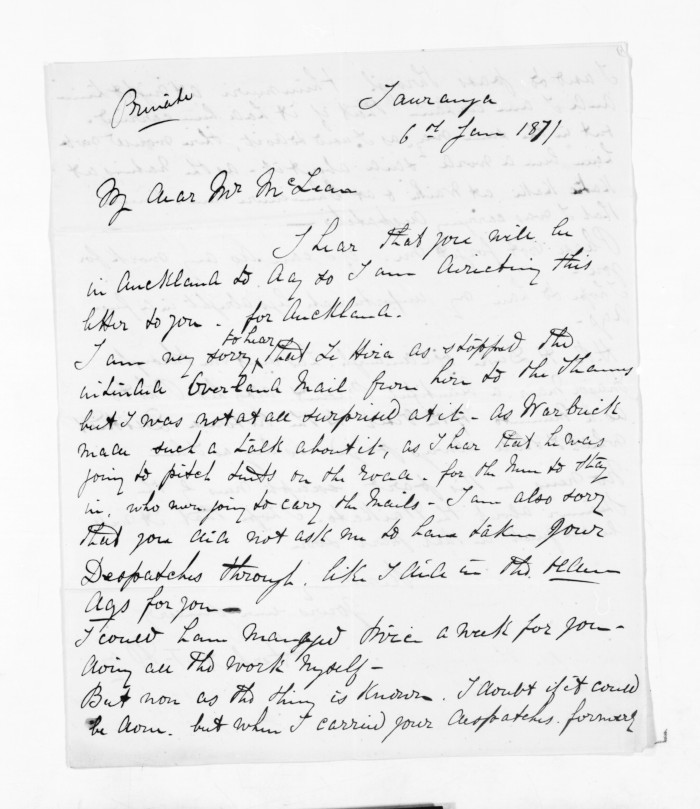 Private
Tauranga
6th Jan 1871
My dear Mr McLean
I hear that you will be
in Auckland to day so I am directing this
letter to you - for Auckland.
I am very sorry to hear that Te Hira as stopped the
intended Overland Mail from here to the Thames
but I was not at all surprised at it - as Warbrick
made such a talk about it, as I hear that he was
going to pitch tents on the road - for the men to stay
in, who were going to carry the Mails - I am also sorry
that you did not ask me to have taken your
Despatches through, like I did in the
days for you -
I could have managed twice a week for you -
doing all the work myself -
But now as the thing is known. I doubt if it could
be done. but when I carried your despatches formerly